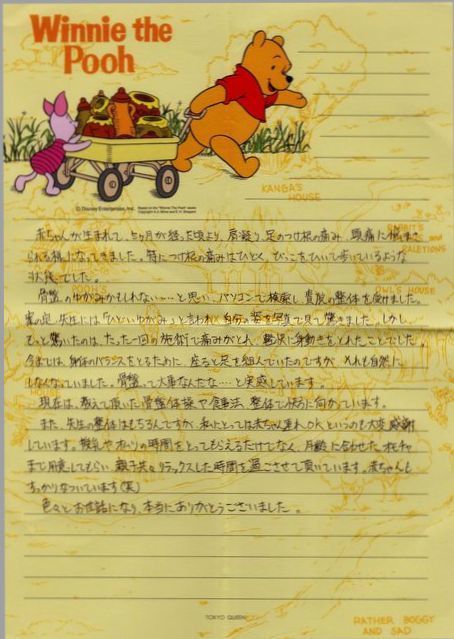 Winnie the
Pooh
© Disney Enterprises, Inc.
Based on the "Winnie The Pooh" works
Copyright A.A. Milne and E.H. Shepard
KANGA'S
HOUSE
赤ちゃんが生まれて、5ヶ月が経った頃より、肩凝り、足のつけ根の痛み、頭痛に悩まさ
れる様になってきました。特につけ根の痛みはひどく、びっこをひいて歩いているような
状態でした。
POOH'S
OWL'S HOUSE
骨盤のゆがみかもしれない……と思い、パソコンで検索し、貴院の整体を受けました。
案の定、先生には「ひどいゆがみ」と言われ、自分の姿を写真で見て驚きました。しかし、
もっと驚いたのは、たった一回の施術で痛みがとれ、軽快に身動きをとれたことでした。
今までは、身体のバランスをとるために座ると足を組んでいたのですが、それも自然に
しなくなっていました。骨盤って大事なんだな…と実感しています。
現在は、教えて頂いた骨盤体操や食事法、整体で快方に向かっています。
また、先生の整体はもちろんですが、私にとっては赤ちゃん連れOKというのも大変感謝
しています。授乳やオムツの時間をとってもらえるだけでなく、月齢に合わせたオモチャ
まで用意してもらい、親子共々リラックスした時間を過ごさせて頂いています。赤ちゃんも
すっかりなついています(笑)
色々とお世話になり、本当にありがとうございました。
TOKYO QUEEN
RATHER BOGGY
AND SAD